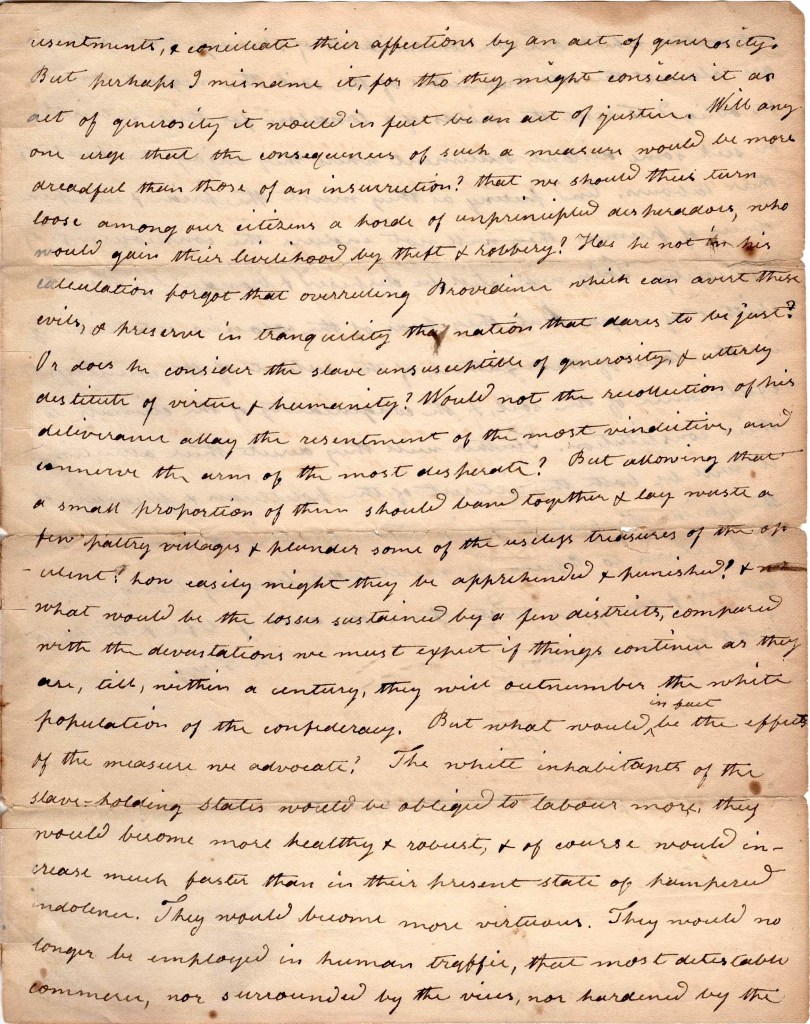 resentments, & conciliate their affections by an act of generosity.
But perhaps I misname it, for tho they might consider it as
act of generosity it would in fact be an act of justice. Will any
one urge that the consequences of such a measure would be more
dreadful than those of an insurrection? that we should their turn
loose among our citizens a horde of unprincipled desperadoes, who
would gain their livelihood by theft & robbery? Has he not in his
calculation forgot that overruling Providence which can avert these
evils, & preserve in tranquility the nation that dares to be just?
Or does he consider the slave unsusceptible of generosity, & utterly
destitute of virtue & humanity? Would not the recollection of his
deliverance allay the resentment of the most vindictive, and
unnerve the arm of the most desperate? But allowing that
a small proportion of them should band together & lay waste a
few paltry villages & plunder some of the useless treasures of the op
-ulent? how easily might they be apprehended & punished? &
what would be the losses sustained by a few districts, compared
with the devastations we must expect if things continue as they
are, till, within a century, they will outnumber the white
population of the confederacy. But what would in fact be the effects
of the measure we advocate? The white inhabitants of the
slave-holding states would be obliged to labour more, they
would become more healthy & robust, & of course would in-
crease much faster than in their present state of pampered
indolence. They would become more virtuous. They would no
longer be employed in human traffic, that most detestable
commerce, nor surrounded by the vices, nor hardened by the